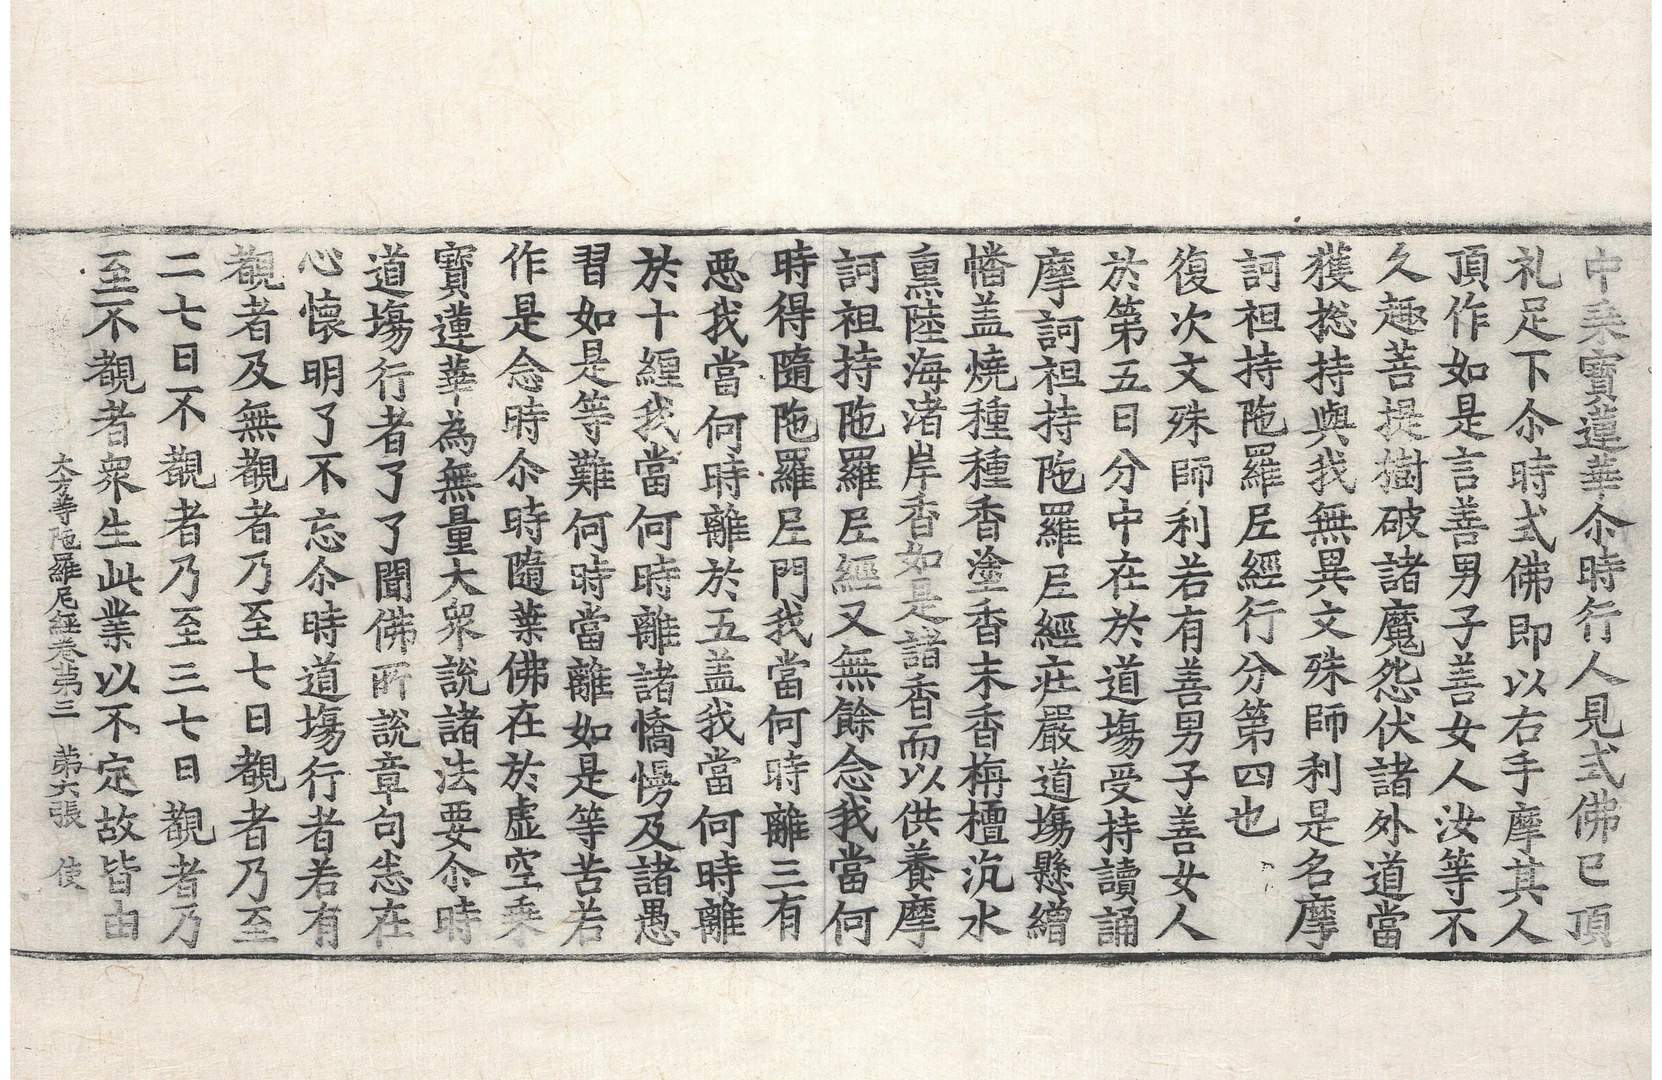 中乗寶蓮華尒時行人見式佛已頂
礼足下尒時式佛即以右手摩其人
頂作如是言善男子善女人汝等不
久趣菩提樹破諸魔怨伏諸外道當
獲惣持與我無異文殊師利是名摩
訶袒持陁羅𡰱經行分第四也
復次文殊師利若有善男子善女人
於第五日分中在於道塲受持讀誦
摩訶袒持陁羅𡰱經庄嚴道塲懸繒
幡盖燒種種香塗香末香栴檀沉水
熏陸海渚岸香如是諸香而以供養摩
訶袒持陁羅𡰱經又無餘念我當何
時得隨陁羅𡰱門我當何時離三有
惡我當何時離於五盖我當何時離
於十纏我當何時離諸憍慢及諸愚
習如是等難何時當離如是等苦若
作是念時尒時隨葉佛在於虛空乗
寶蓮華為無量大衆說諸法要尒時
道塲行者了了聞佛所說章句恚在
心懷明了不忘尒時道塲行者若有
觀者及無觀者乃至七日觀者乃至
二七日不觀者乃至三七日觀者乃
至不觀者衆生此業以不定故皆由
大方等陁羅尼經卷苐三　苐六張　使